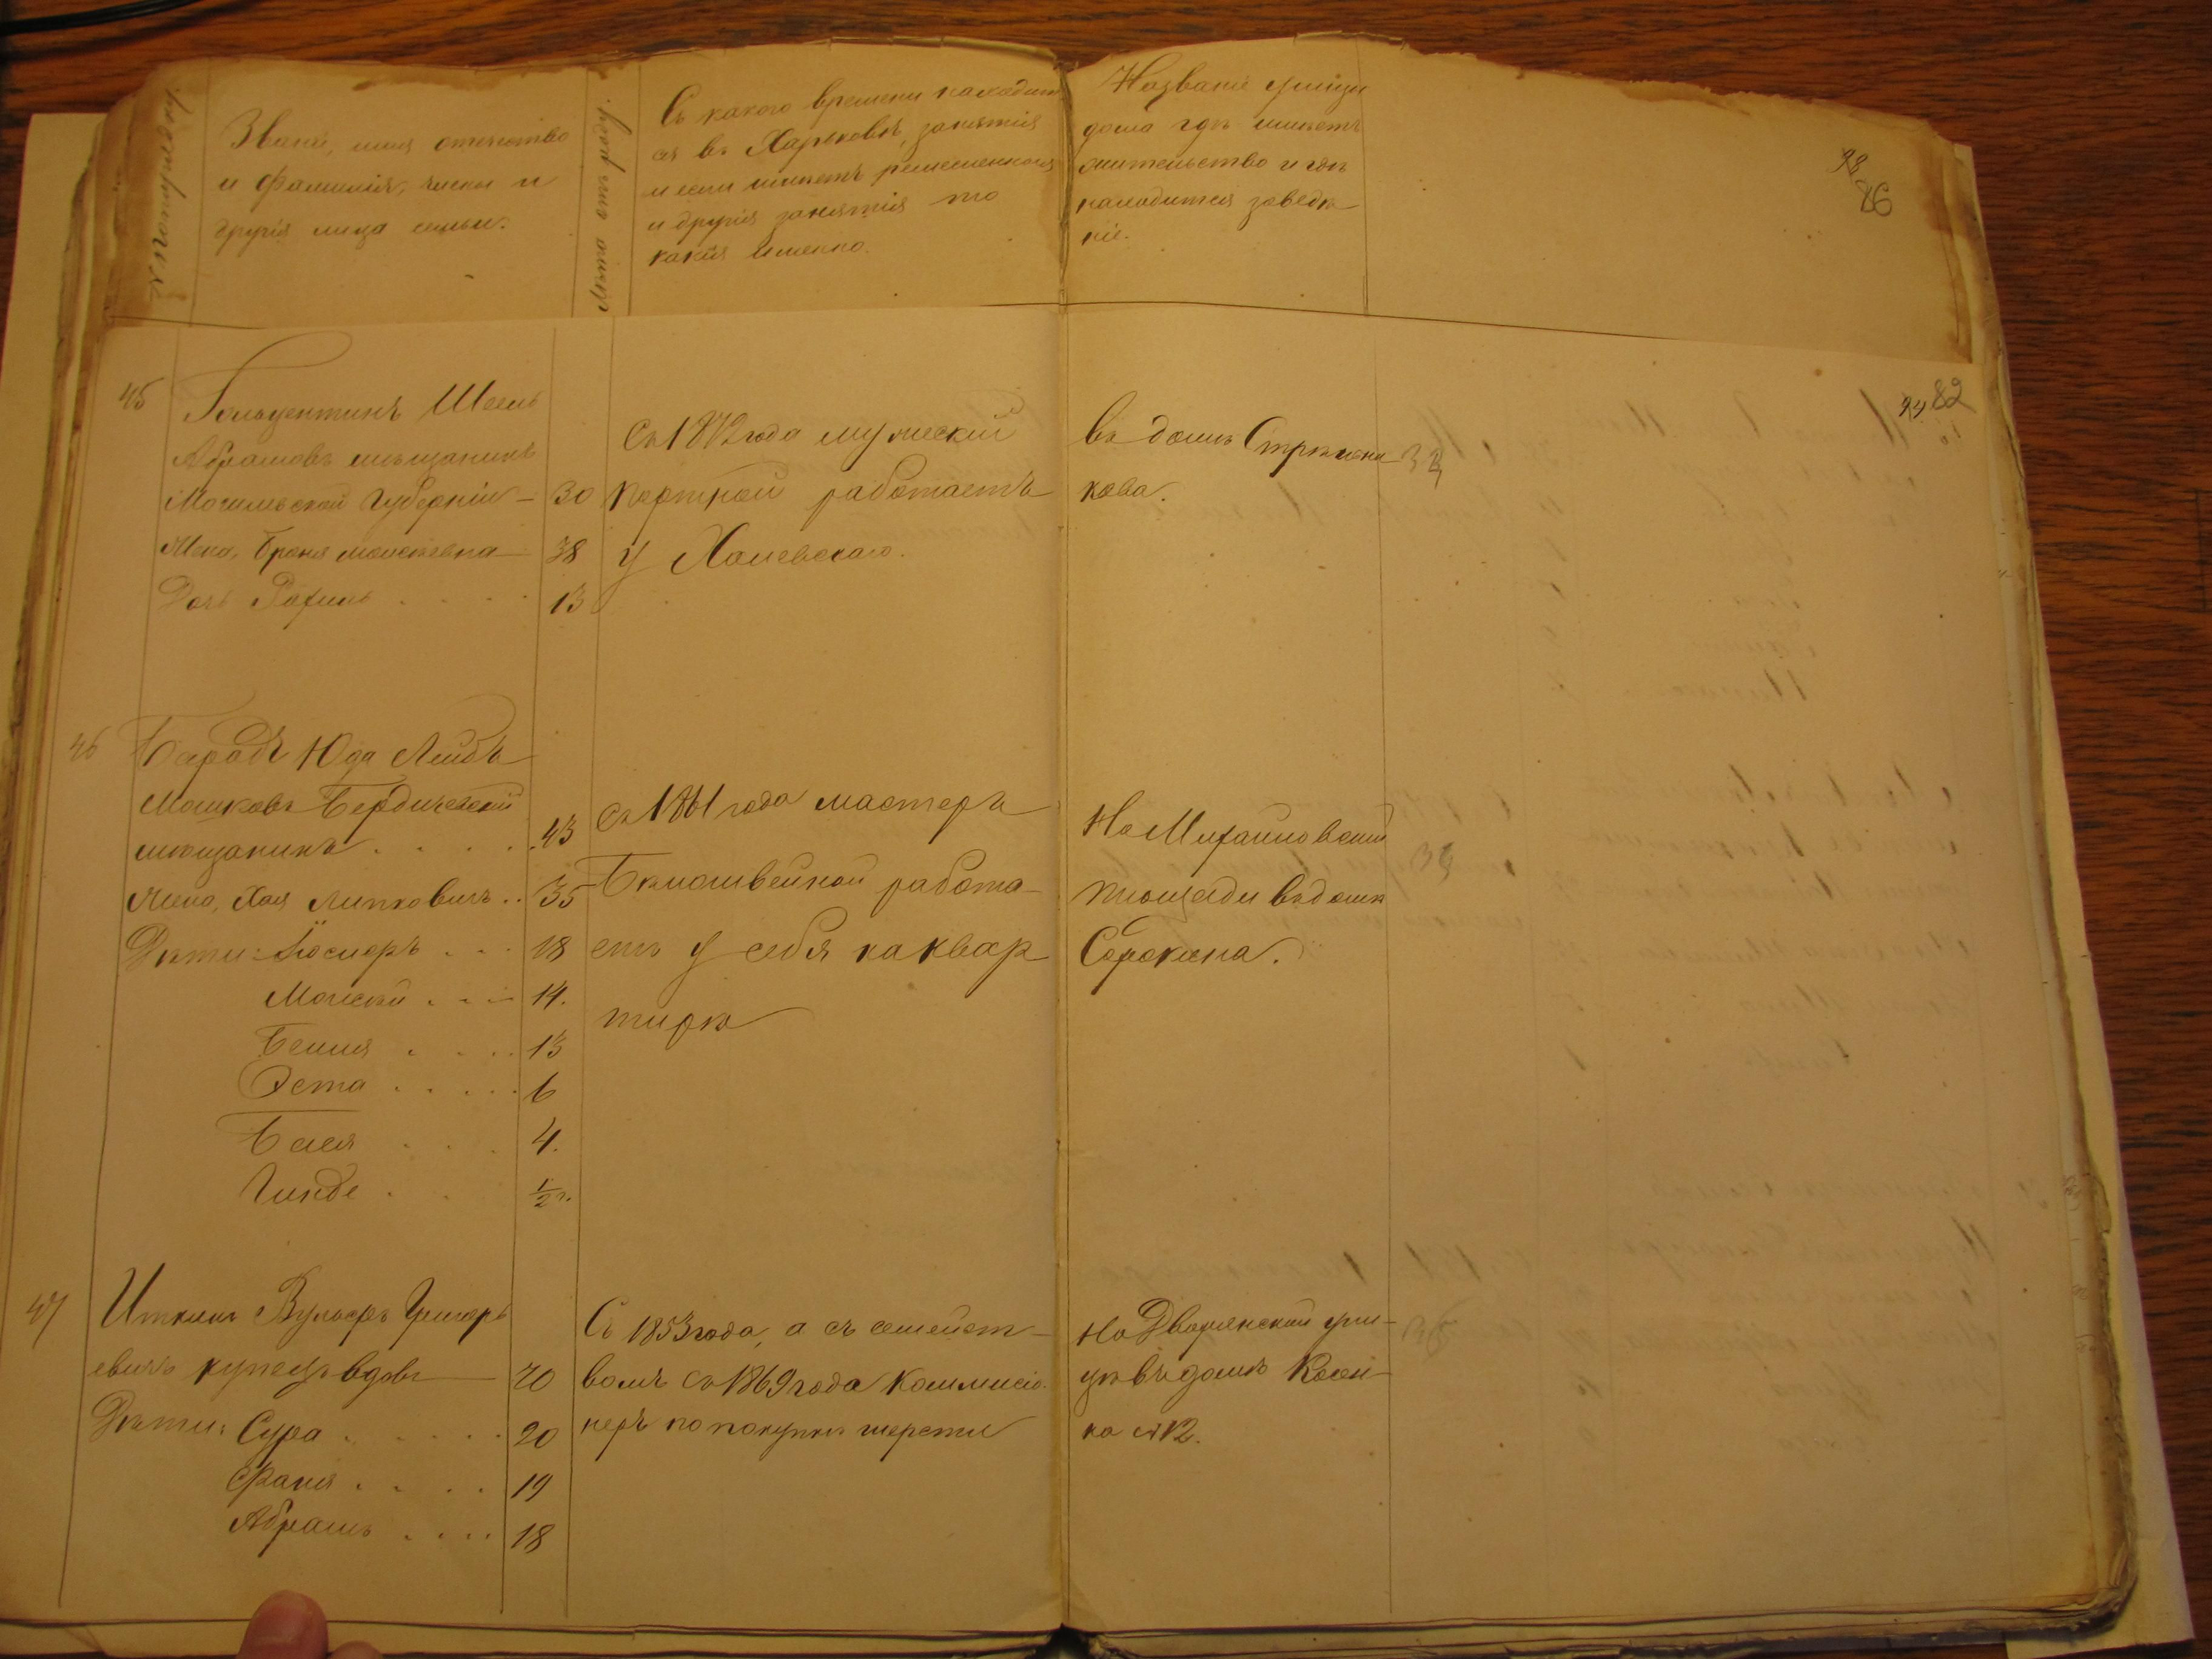 № по порядку.
Званіе, имя отчество
и фамилія, члены и
другія лица семьи.
Лѣта отъ роду.
Съ какого времени находит
ся въ Харьковѣ, занятія
и если имѣетъ ремесленныя
и другія занятія то
какія именно.
Названіе улицы
дома гдѣ имѣетъ
жительство и гдѣ
находится заведе-
ніе.
98
86
94 82
45
Гольдентинъ
Абрамовъ мѣщанинъ
Могилевской Губерніи — 30
Жена, Броня — 38
Дочь Рахиль . . . . 13
Съ 1872 года мужескій
Портной работаетъ
у Халевскаго.
въ домѣ
кова.
46
Юда Лейбъ
Мошковъ Бердичевскій
мѣщанинъ . . . . . 43
Жена, Хая Липковичъ . . 35
Дѣти: . . . 18
. . . 14.
Бения . . . . 13
Эста . . . . . 6
Бася . . . . 4.
Гинде . . 1/2 г.
Съ 1861 года мастеръ
Бѣлошвейной работа-
етъ у себя на квар
тирѣ
На Михайловской
площади въ домѣ
Сорокина.
47
Иткинъ Вульфъ Григорь
евичъ купецъ вдовъ — 70
Дѣти: Сура . . . . . 20
Фаня . . . . 19
Абрамъ . . . . 18
Съ 1853 года, а съ семейст-
вомъ съ 1869 года Коммисіо-
неръ по покупкѣ шерсти
На Дворянской ули-
цѣ въ домѣ
на №12.